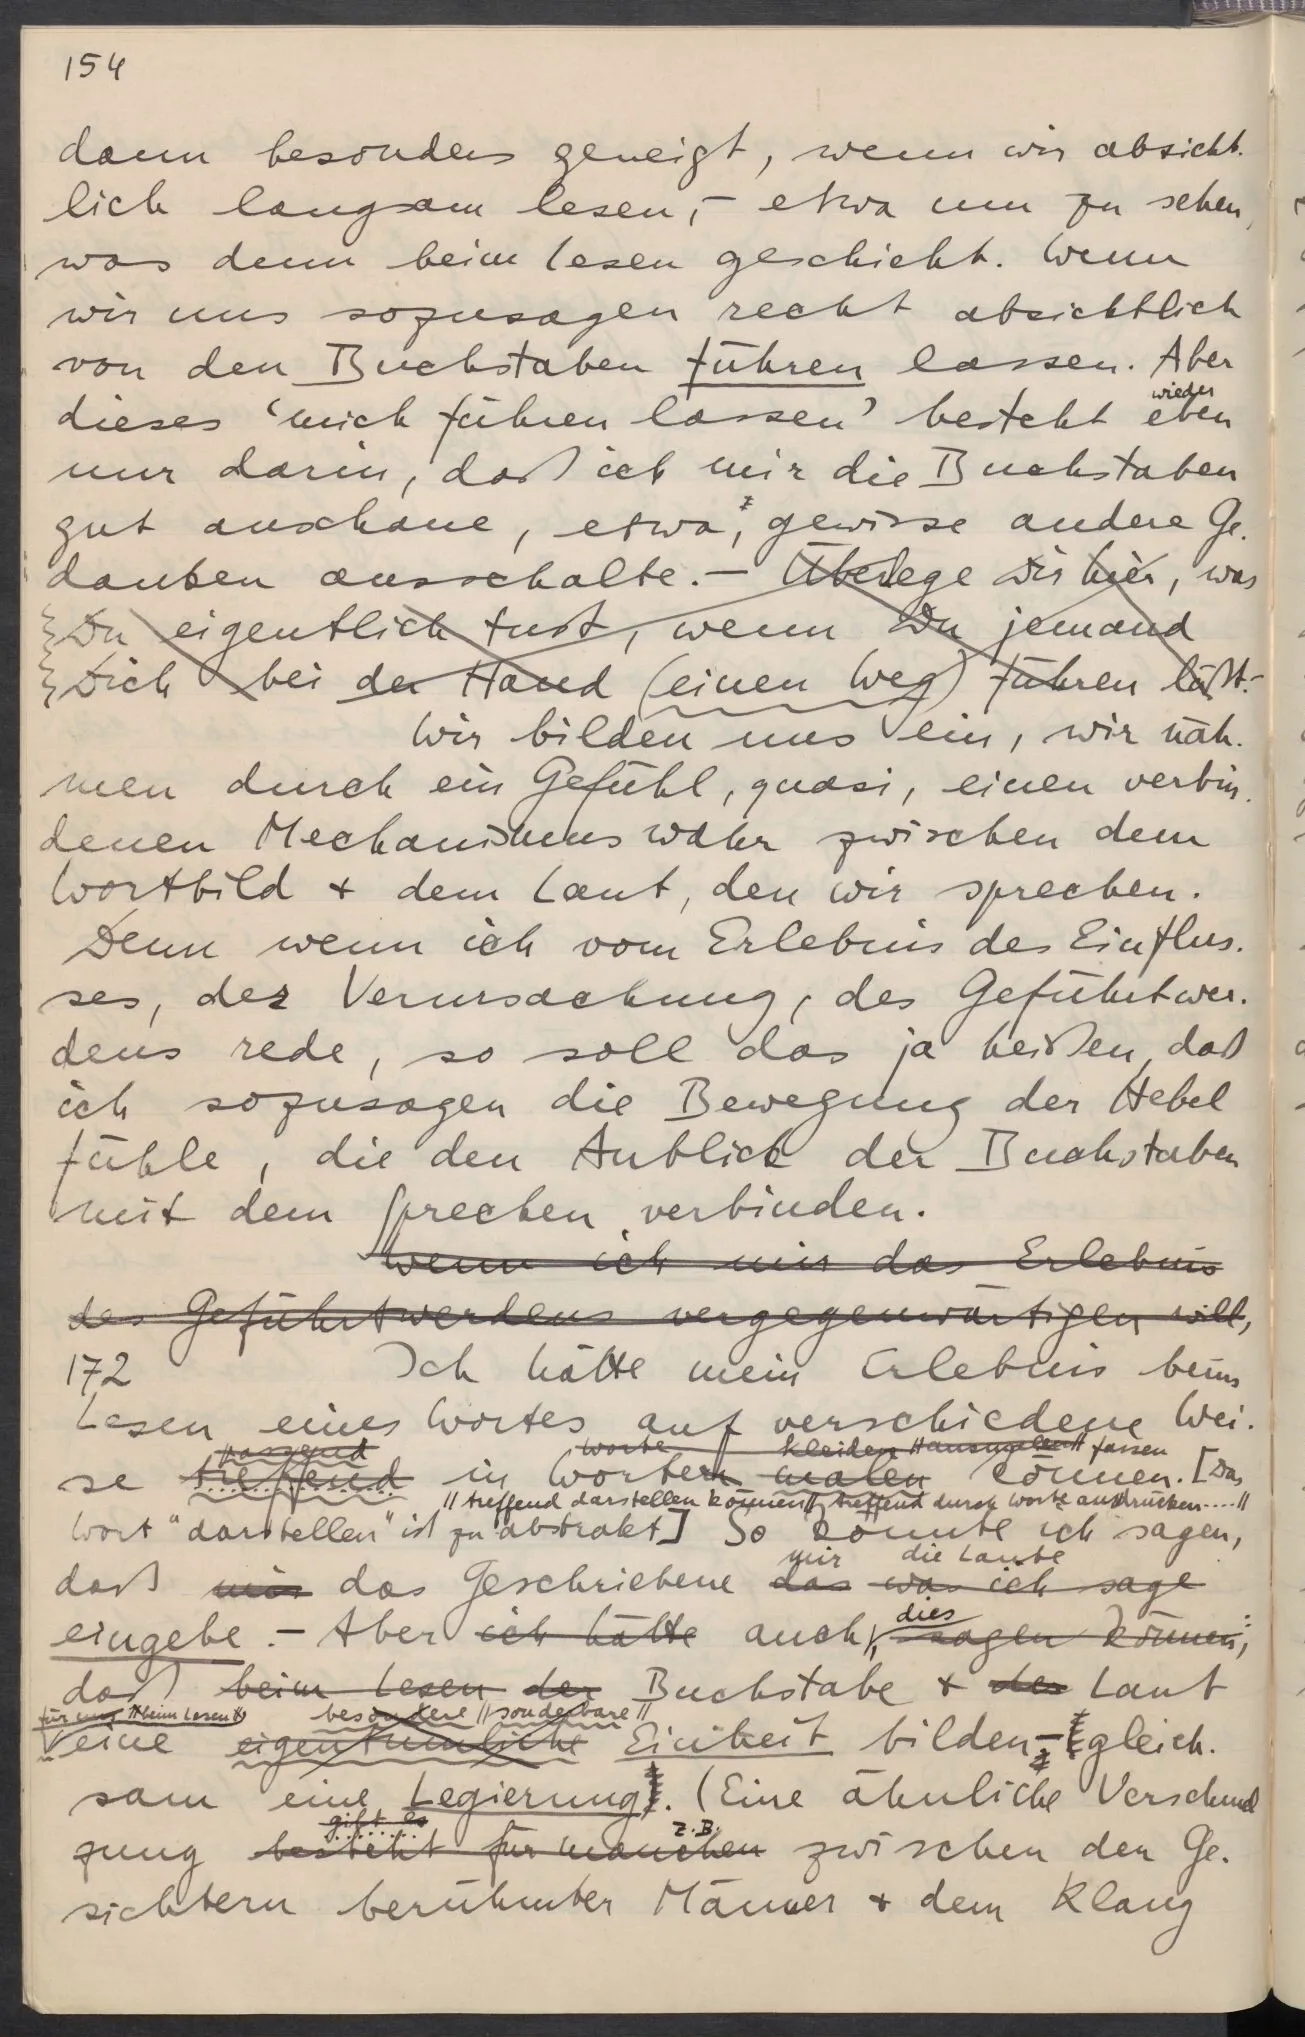 154
dann besonders geneigt, wenn wir absicht-
lich langsam lesen, – etwa um zu sehen,
was denn beim Lesen geschieht. Wenn
wir uns sozusagen recht absichtlich
von den Buchstaben führen lassen. Aber
wieder
dieses ‘mich führen lassen’ besteht eben
nur darin, daß ich mir die Buchstaben
gut anschaue, etwa, gewisse andere Ge-
danken ausschalte. – Überlege Dir hier, was
Du eigentlich tust, wenn Du jemand
Dich bei der Hand (einen Weg) führen läßt. –
Wir bilden uns ein, wir näh-
men durch ein Gefühl, quasi, einen verbin-
denen Mechanismus wahr zwischen dem
Wortbild + dem Laut, den wir sprechen.
Denn wenn ich vom Erlebnis des Einflus-
ses, der Verursachung, des Geführtwer-
dens rede, so soll das ja heißen, daß
ich sozusagen die Bewegung der Hebel
fühle, die den Anblick der Buchstaben
mit dem Sprechen verbinden.
Wenn ich mir das Erlebnis
des Geführtwerdens vergegenwärtigen will,
172 Ich hätte mein Erlebnis beim
Lesen eines Wortes auf verschiedene Wei-
passend Worte kleiden // fassen
se treffend in Worten malen können. [Das
// treffend darstellen können // treffend durch Worte ausdrücken .... //
Wort “darstellen” ist zu abstrakt] So könnte ich sagen,
mir die Laute
daß mir das Geschriebene das was ich sage
eingebe. – Aber ich hätte auch dies sagen können;
daß beim Lesen der Buchstabe + der Laut
für uns // beim Lesen // besondere // sonderbare //
eine eigentümliche Einheit bilden – gleich-
sam eine Legierung. (Eine ähnliche Verschmel
gibt es z.B.
zung besteht für manchen zwischen den Ge-
sichtern berühmter Männer + dem Klang